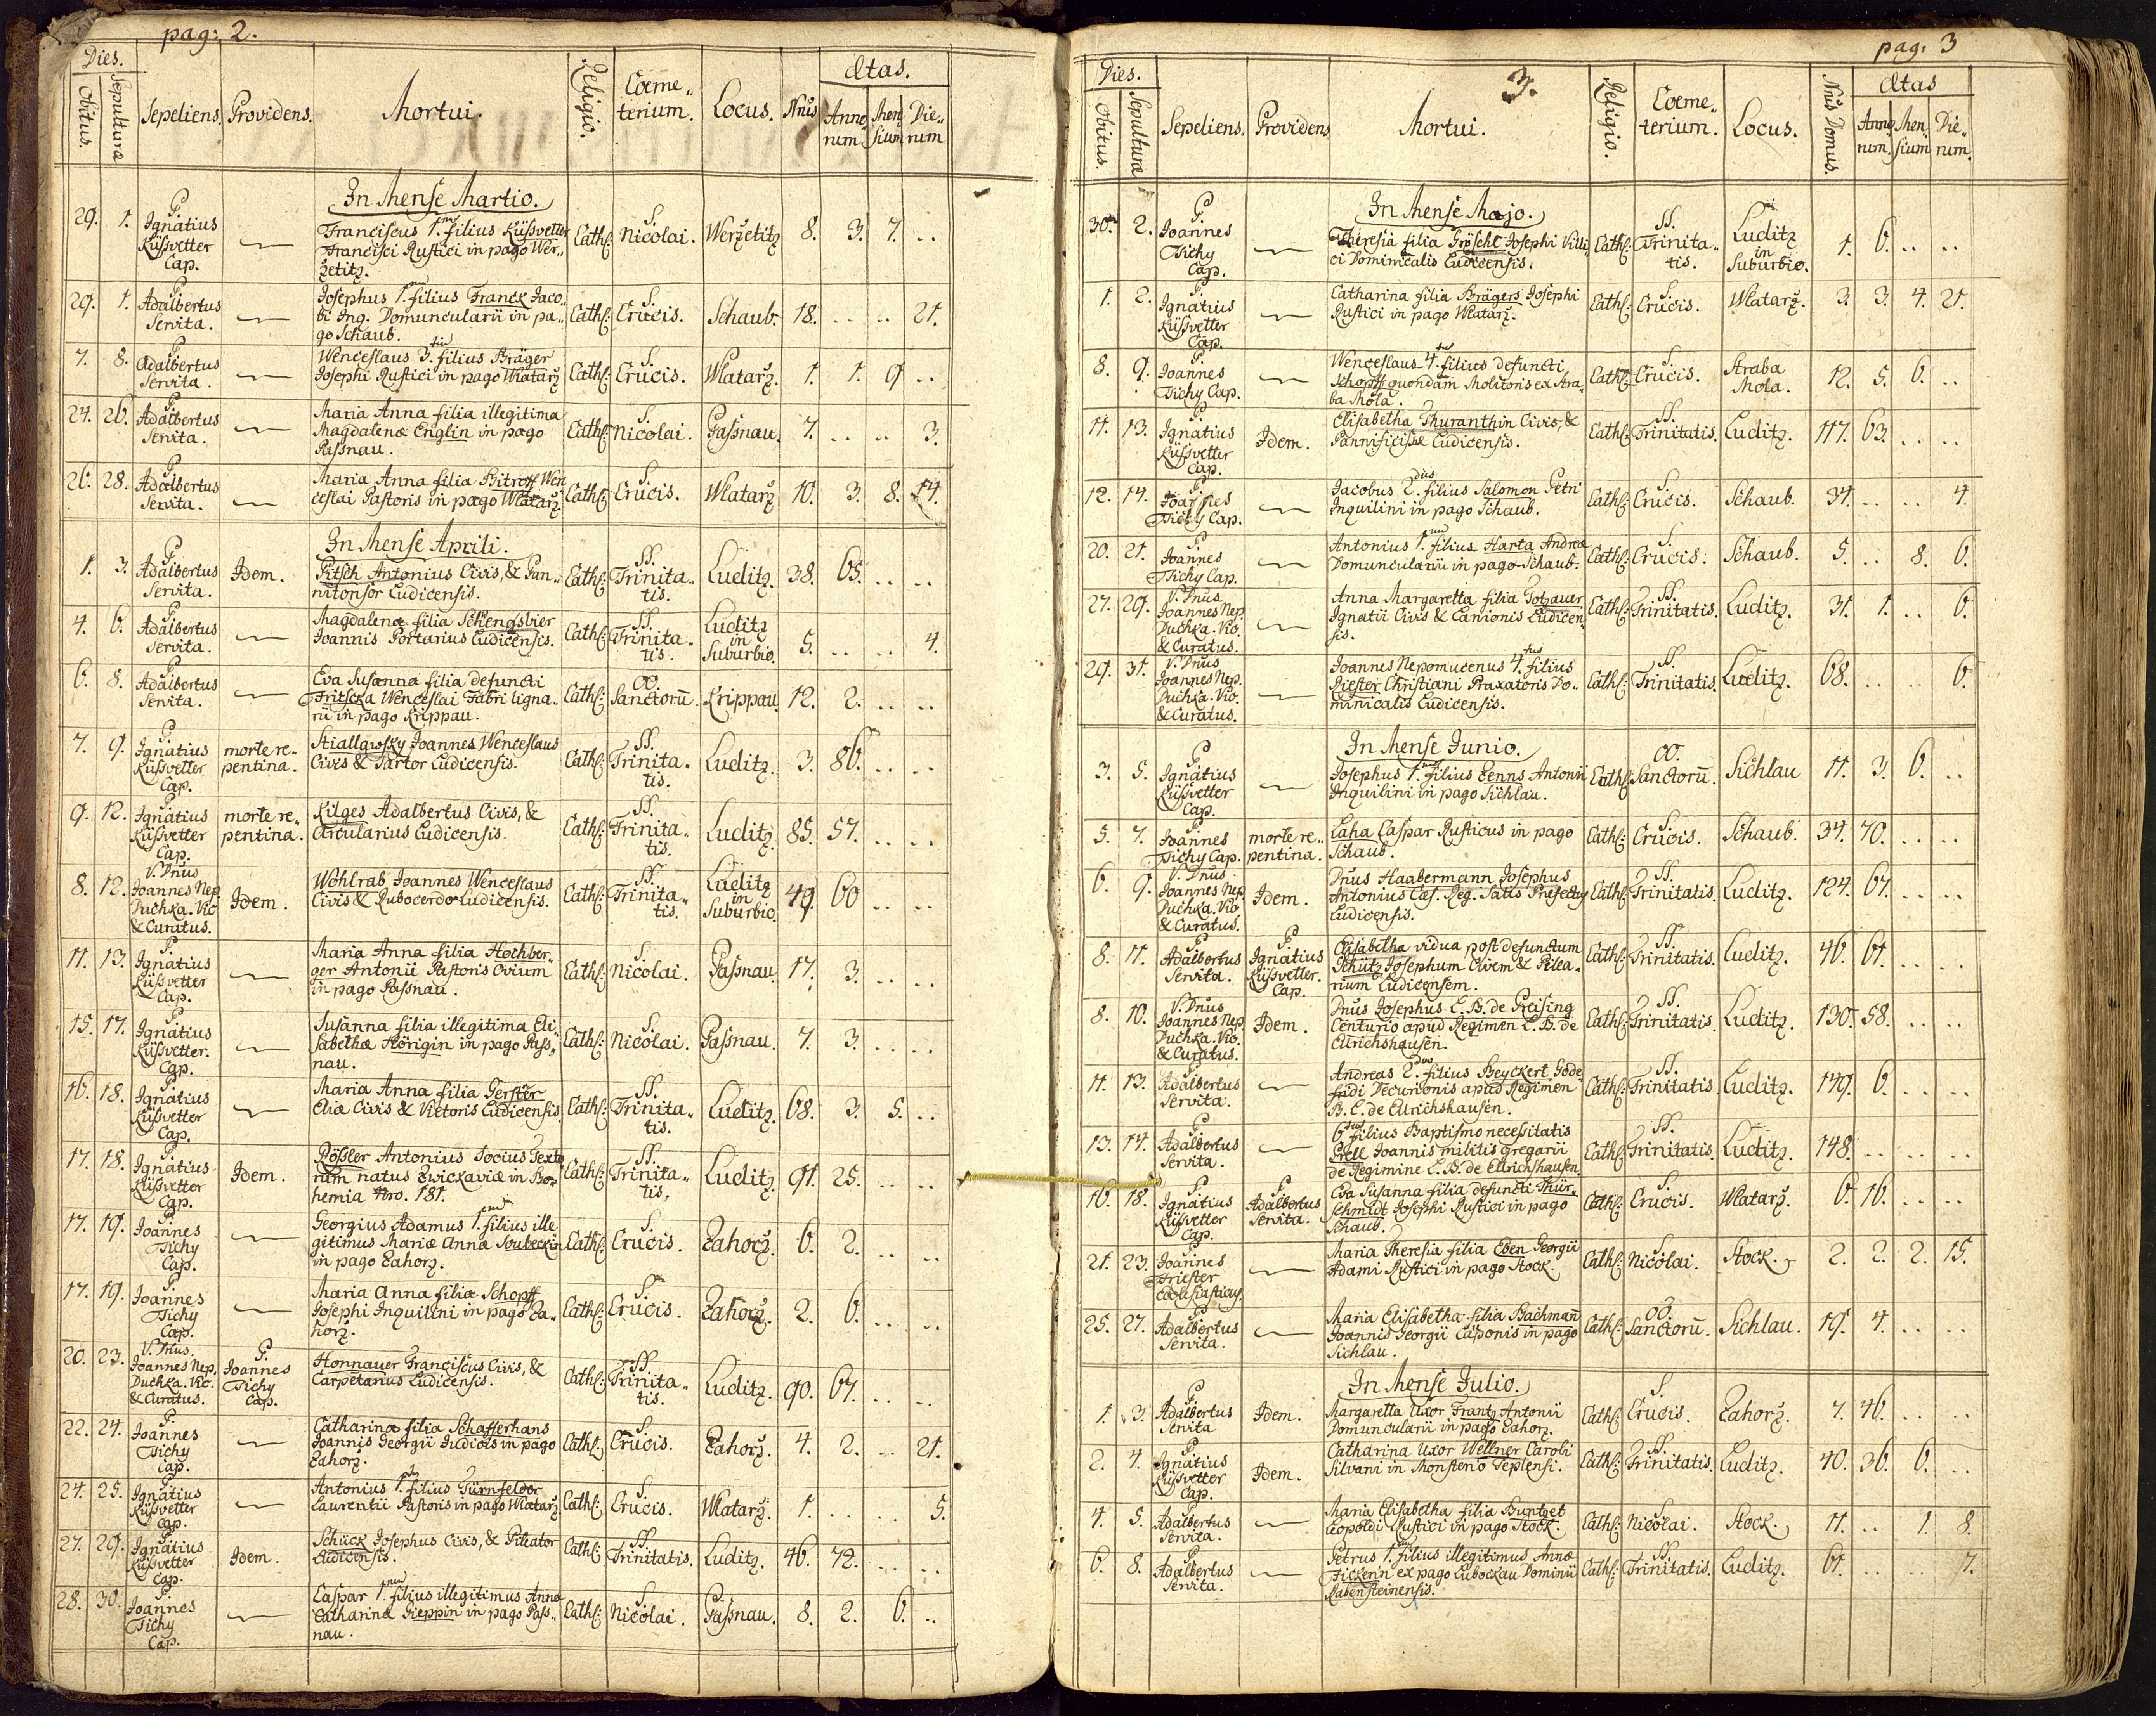 pag: 2.
Dies.
Obitus. Sepulturæ Sepeliens. Providens. Mortui. Religio. Cœme„ terium. Locus. Nrus Ætas. Anno„ rum Men„ sium Die„ rum
In Mense Martio.
29. 1. P. Ignatius Küssvetter Cap. Franciscus 1.mus filius Küssvetter Francisci Rustici in pago Wer„ zetitz. Cath: S. Nicolai. Werzetitz 8. 3. 7. ..
29. 1. P. Adalbertus Servita. Josephus 1.mus filius Franck Jaco„ bi Ing. Domuncularii in pa„ go Schaub. Cath: S. Crucis. Schaub. 18. .. .. 21.
7. 8. P. Adalbertus Servita. Wenceslaus 3.tius filius Bräger Josephi Rustici in pago Wlatarz Cath: S. Crucis. Wlatarz. 1. 1. 9 ..
24. 26. P. Adalbertus Servita. Maria Anna filia illegitima Magdalenæ Englin in pago Passnau. Cath: S. Nicolai. Passnau. 7. .. .. 3.
26. 28. P. Adalbertus Servita. Maria Anna filia Bitroff Wen ceslai Pastoris in pago Wlatarz. Cath: S. Crucis. Wlatarz 10. 3. 8. 14.
In Mense Aprili.
1. 3. P. Adalbertus Servita. Idem. Pitsch Antonius Civis, & Pan„ nitonsor Ludicensis. Cath: SS. Trinita„ tis. Luditz. 38. 65. .. ..
4. 6. P. Adalbertus Servita. Magdalena filia Schengsbier Joannis Portarius Ludicensis. Cath: SS. Trinita„ tis. Luditz in Suburbio. 5. .. .. 4.
6. 8. P. Adalbertus Servita. Eva Susanna filia defuncti Fritscka Wenceslai Fabri ligna„ rii in pago Krippau. Cath: OO. Sanctorū. Krippau. 12. 2. .. ..
7. 9. P. Ignatius Küssvetter Cap. morte re„ pentina. Stiallgowsky Joannes Wenceslaus Civis & Sartor Ludicensis. Cath: SS. Trinita„ tis. Luditz. 3. 86. .. ..
9. 12. P. Ignatius Küssvetter Cap. morte re„ pentina. Kilges Adalbertus Civis, & Arcularius Ludicensis. Cath: SS. Trinita„ tis. Luditz. 85. 57. .. ..
8. 12. V. Dnus Joannes Nep. Duchka. Vic. & Curatus. Idem. Wohlrab Joannes Wenceslaus Civis & Rubocerdo Ludicensis. Cath: SS. Trinita„ tis. Luditz in Suburbio. 49. 60 .. ..
11. 13. P. Ignatius Küssvetter Cap. Maria Anna filia Hochber„ ger Antonii Pastoris Ovium in pago Passnau. Cath: S. Nicolai. Passnau. 17. 3. .. ..
15. 17. P. Ignatius Küssvetter. Cap. Susanna filia illegitima Eli„ sabethæ Hörigin in pago Pass„ nau. Cath: S. Nicolai. Passnau. 7. 3. .. ..
16. 18. P. Ignatius Küssvetter Cap. Maria Anna filia Gerster Eliæ Civis & Vietoris Ludicensis. Cath: SS. Trinita„ tis. Luditz. 68. 3. 5. ..
17. 18. P. Ignatius Küssvetter Cap. Idem. Rössler Antonius Socius Texto rum natus Zwickaviæ in Bo„ hemia Nro. 181. Cath: SS. Trinita„ tis. Luditz. 91. 25. .. ..
17. 19. P. Joannes Tichy Cap. Georgius Adamus 1.mus filius ille gitimus Mariæ Annæ Soubeckin in pago Zahorz. Cath: S. Crucis. Zahorz. 6. 2. .. ..
17. 19. P. Joannes Tichy Cap. Maria Anna filia Schopff Josephi Inquilini in pago Za„ horz. Cath: S. Crucis. Zahorz. 2. 6. .. ..
20. 23. V. Dnus. Joannes Nep. Duchka. Vic. & Curatus. P. Joannes Tichy Cap. Honnauer Franciscus Civis, & Carpetarius Ludicensis. Cath: SS. Trinita„ tis. Luditz. 90. 67. .. ..
22. 24. P. Joannes Tichy Cap. Catharina filia Schafferhans Joannis Georgii Judicis in pago Zahorz. Cath: S. Crucis. Zahorz. 4. 2. .. 21.
24. 25. P. Ignatius Küssvetter Cap. Antonius 1.mus filius Türnfelder Laurentii Pastoris in pago Wlatarz. Cath: S. Crucis. Wlatarz. 1. .. .. 5.
27. 29. P. Ignatius Küssvetter Cap. Idem. Schück Josephus Civis, & Pileator Ludicensis. Cath: SS. Trinitatis. Luditz. 46. 72. .. ..
28. 30. P. Joannes Tichy Cap. Caspar 1.mus filius illegitimus Annæ Catharinæ Pieppin in pago Pass„ nau. Cath: S. Nicolai. Passnau. 8. 2. 6. ..
pag: 3
3.
Dies.
Obitus. Sepulturæ Sepeliens. Providens Mortui. Religio. Cœme„ terium. Locus. Nrus Domus. Ætas Anno„ rum. Men„ sium Die„ rum.
In Mense Majo.
30. 2. P. Joannes Tichy Cap. Theresia filia Gröschl Josephi Villi ci Dominicalis Ludicensis. Cath: SS. Trinita„ tis. Luditz in Suburbio. 1. 6. .. ..
1. 2. P. Ignatius Küssvetter Cap. Catharina filia Brägers Josephi Rustici in pago Wlatarz. Cath: S. Crucis. Wlatarz. 3. 3. 4. 21.
8. 9. P. Joannes Tichy Cap. Wenceslaus 4.tus filius defuncti Schopff quondam Molitoris ex Stra„ ba Mola. Cath: S. Crucis. Straba Mola. 12. 5. 6. ..
11. 13. P. Ignatius Küssvetter Cap. Idem. Elisabetha Thuranthin Civis, & Pannificissæ Ludicensis. Cath: SS. Trinitatis. Luditz. 117. 63. .. ..
12. 14. P. Joannes Tichy Cap. Jacobus 2.dus filius Salomon Petri Inquilini in pago Schaub. Cath: S. Crucis. Schaub. 34. .. .. 4.
20. 21. P. Joannes Tichy Cap. Antonius 1.mus filius Harta Andreæ Domuncularii in pago Schaub. Cath: S. Crucis. Schaub. 5. .. 8. 6.
27. 29. V. Dnus Joannes Nep. Duchka. Vic. & Curatus. Anna Margaretta filia Totzauer Ignatii Civis & Lanionis Ludicen„ sis. Cath: SS. Trinitatis. Luditz. 31. 1. .. 6.
29. 31. V. Dnus Joannes Nep. Duchka. Vic. & Curatus. Joannes Nepomucenus 4.tus filius Riester Christiani Praxatoris Do„ minicalis Ludicensis. Cath: SS. Trinitatis. Luditz. 68. .. .. 6.
In Mense Junio.
3. 5. P. Ignatius Küssvetter Cap. Josephus 1.mus filius Lenns Antonii Inquilini in pago Sichlau. Cath: OO. Sanctorū. Sichlau 11. 3. 6. ..
5. 7. P. Joannes Tichy Cap. morte re„ pentina. Laha Caspar Rusticus in pago Schaub. Cath: S. Crucis. Schaub. 34. 70. .. ..
6. 9. V. Dnus Joannes Nep. Duchka. Vic. & Curatus. Idem. Dnus Haabermann Josephus Antonius Cæs. Reg. Salis Præfectus Ludicensis. Cath: SS. Trinitatis. Luditz. 124. 67. .. ..
8. 11. P. Adalbertus Servita. P. Ignatius Küssvetter. Cap. Elisabetha vidua post defunctum Schütz Josephum Civem & Pilea„ rium Ludicensem. Cath: SS. Trinitatis. Luditz. 46. 61. .. ..
8. 10. V. Dnus Joannes Nep. Duchka. Vic. & Curatus. Idem. Dnus Josephus L. B. de Preising Centurio apud Regimen L. B. de Ellrichshausen. Cath: SS. Trinitatis. Luditz. 130. 58. .. ..
11. 13. P. Adalbertus Servita. Andreas 2.dus filius Beyckert Gode fridi Decurionis apud Regimen B. L. de Ellrichshausen. Cath: SS. Trinitatis Luditz. 149. 6. .. ..
13. 14. P. Adalbertus Servita. 6.tus filius Baptismo necessitatis Grell Joannis militis gregarii de Regimine L. B. de Ellrichshausen. Cath: SS. Trinitatis. Luditz. 148. .. .. ..
16. 18. P. Ignatius Küssvetter Cap. P. Adalbertus Servita. Eva Susanna filia defuncti Thür„ schmidt Josephi Rustici in pago Schaub. Cath: S. Crucis. Wlatarz. 6. 16. .. ..
21. 23. P. Joannes Priester Ecclesiasticus. Maria Theresia filia Eben Georgii Adami Rustici in pago Stock. Cath: S. Nicolai. Stock. 2. 2. 2. 15.
25. 27. P. Adalbertus Servita. Maria Elisabetha filia Bachmañ Joannis Georgii Cuponis in pago Sichlau. Cath: OO. Sanctorū. Sichlau. 19. 4. .. ..
In Mense Julio.
1. 3. P. Adalbertus Servita Idem. Margaretta Uxor Frantz Antonii Domuncularii in pago Zahorz. Cath: S. Crucis. Zahorz. 7. 46. .. ..
2. 4. P. Ignatius Küssvetter Cap. Idem. Catharina Uxor Wellner Caroli Silvani in Monsterio Teplensi. Cath: SS. Trinitatis. Luditz. 40. 36. 6. ..
4. 5. P. Adalbertus Servita. Maria Elisabetha filia Buntzet Leopoldi Rustici in pago Stock. Cath: S. Nicolai. Stock. 11. .. 1. 8.
6. 8. P. Adalbertus Servita. Petrus 1.mus filius illegitimus Annæ Fickerin ex pago Lubockau Dominii Rabensteinensis. Cath: SS. Trinitatis. Luditz. 61. .. .. 7.